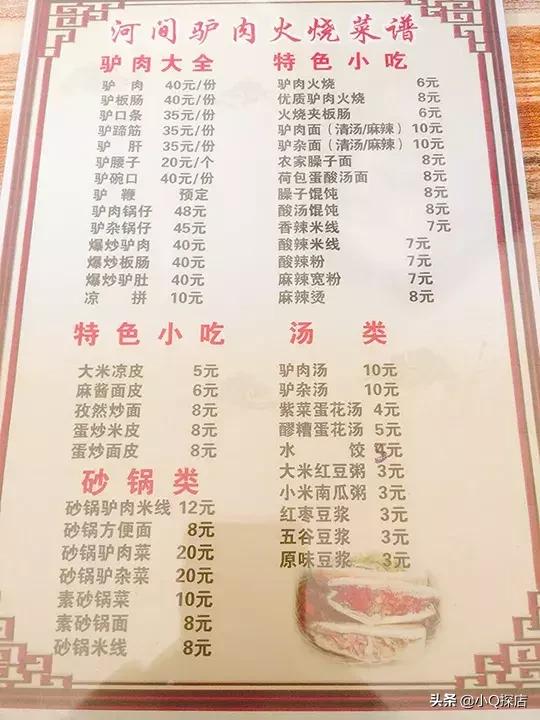 河间驴肉火烧菜谱
驴肉大全
驴 肉 40元/份
驴板肠 40元/份
驴口条 35元/份
驴蹄筋 35元/份
驴 肝 35元/份
驴腰子 20元/个
驴碗口 40元/份
驴 鞭 预定
驴肉锅仔 48元
驴杂锅仔 45元
爆炒驴肉 40元
爆炒板肠 40元
爆炒驴肚 40元
凉 拼 10元
特色小吃
驴肉火烧 6元
优质驴肉火烧 8元
火烧夹板肠 6元
驴肉面（清汤/麻辣）10元
驴杂面（清汤/麻辣）10元
农家臊子面 8元
荷包蛋酸汤面 8元
臊子馄饨 8元
酸汤馄饨 8元
香辣米线 7元
酸辣米线 7元
酸辣粉 7元
麻辣宽粉 7元
麻辣烫 8元
特色小吃
大米凉皮 5元
麻酱面皮 6元
孜然炒面 8元
蛋炒米皮 8元
蛋炒面皮 8元
砂锅类
砂锅驴肉米线 12元
砂锅方便面 8元
砂锅驴肉菜 20元
砂锅驴杂菜 20元
素砂锅菜 10元
素砂锅面 8元
砂锅米线 8元
汤 类
驴肉汤 10元
驴杂汤 10元
紫菜蛋花汤 4元
醪糟蛋花汤 5元
水 饺 元
大米红豆粥 3元
小米南瓜粥 3元
红枣豆浆 3元
五谷豆浆 3元
原味豆浆 3元
头条 @小Q探店